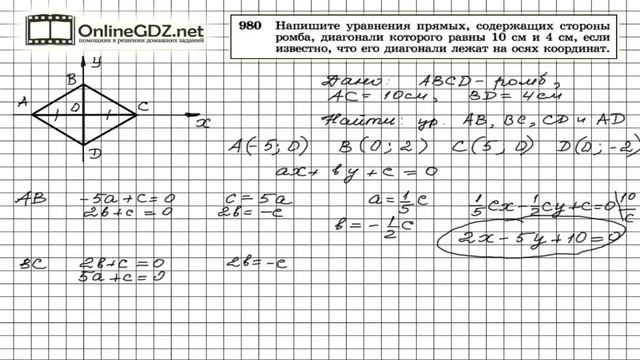 OnlineGDZ.net
помощник в решении домашних заданий
980 Напишите уравнения прямых, содержащих стороны
ромба, диагонали которого равны 10 см и 4 см, если
известно, что его диагонали лежат на осях координат.
y
B
A
O
C
x
D
Дано: ABCD – ромб,
AC = 10см, BD = 4см
Найти: ур. AB, BC, CD и AD
A(-5; 0) B(0; 2) C(5; 0) D(0; -2)
ax + by + c = 0
AB -5a + c = 0 c = 5a a = 1/5 c 1/5 cx - 1/2 cy + c = 0 | 10/c
2b + c = 0 2b = -c b = - 1/2 c 2x - 5y + 10 = 0
BC 2b + c = 0 2b = -c
5a + c = 0